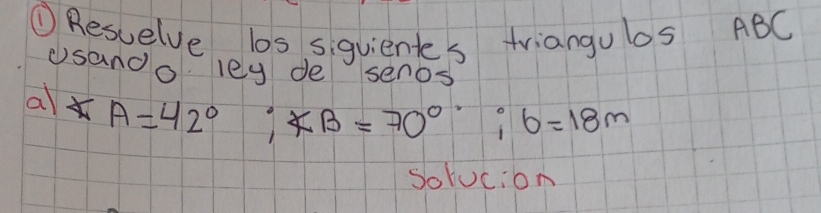 ① Resuelve los siguientes triangulos ABC
usando ley de senos
a) ∡ A = 42° ; ∡ B = 70° ; b = 18m
Solucion